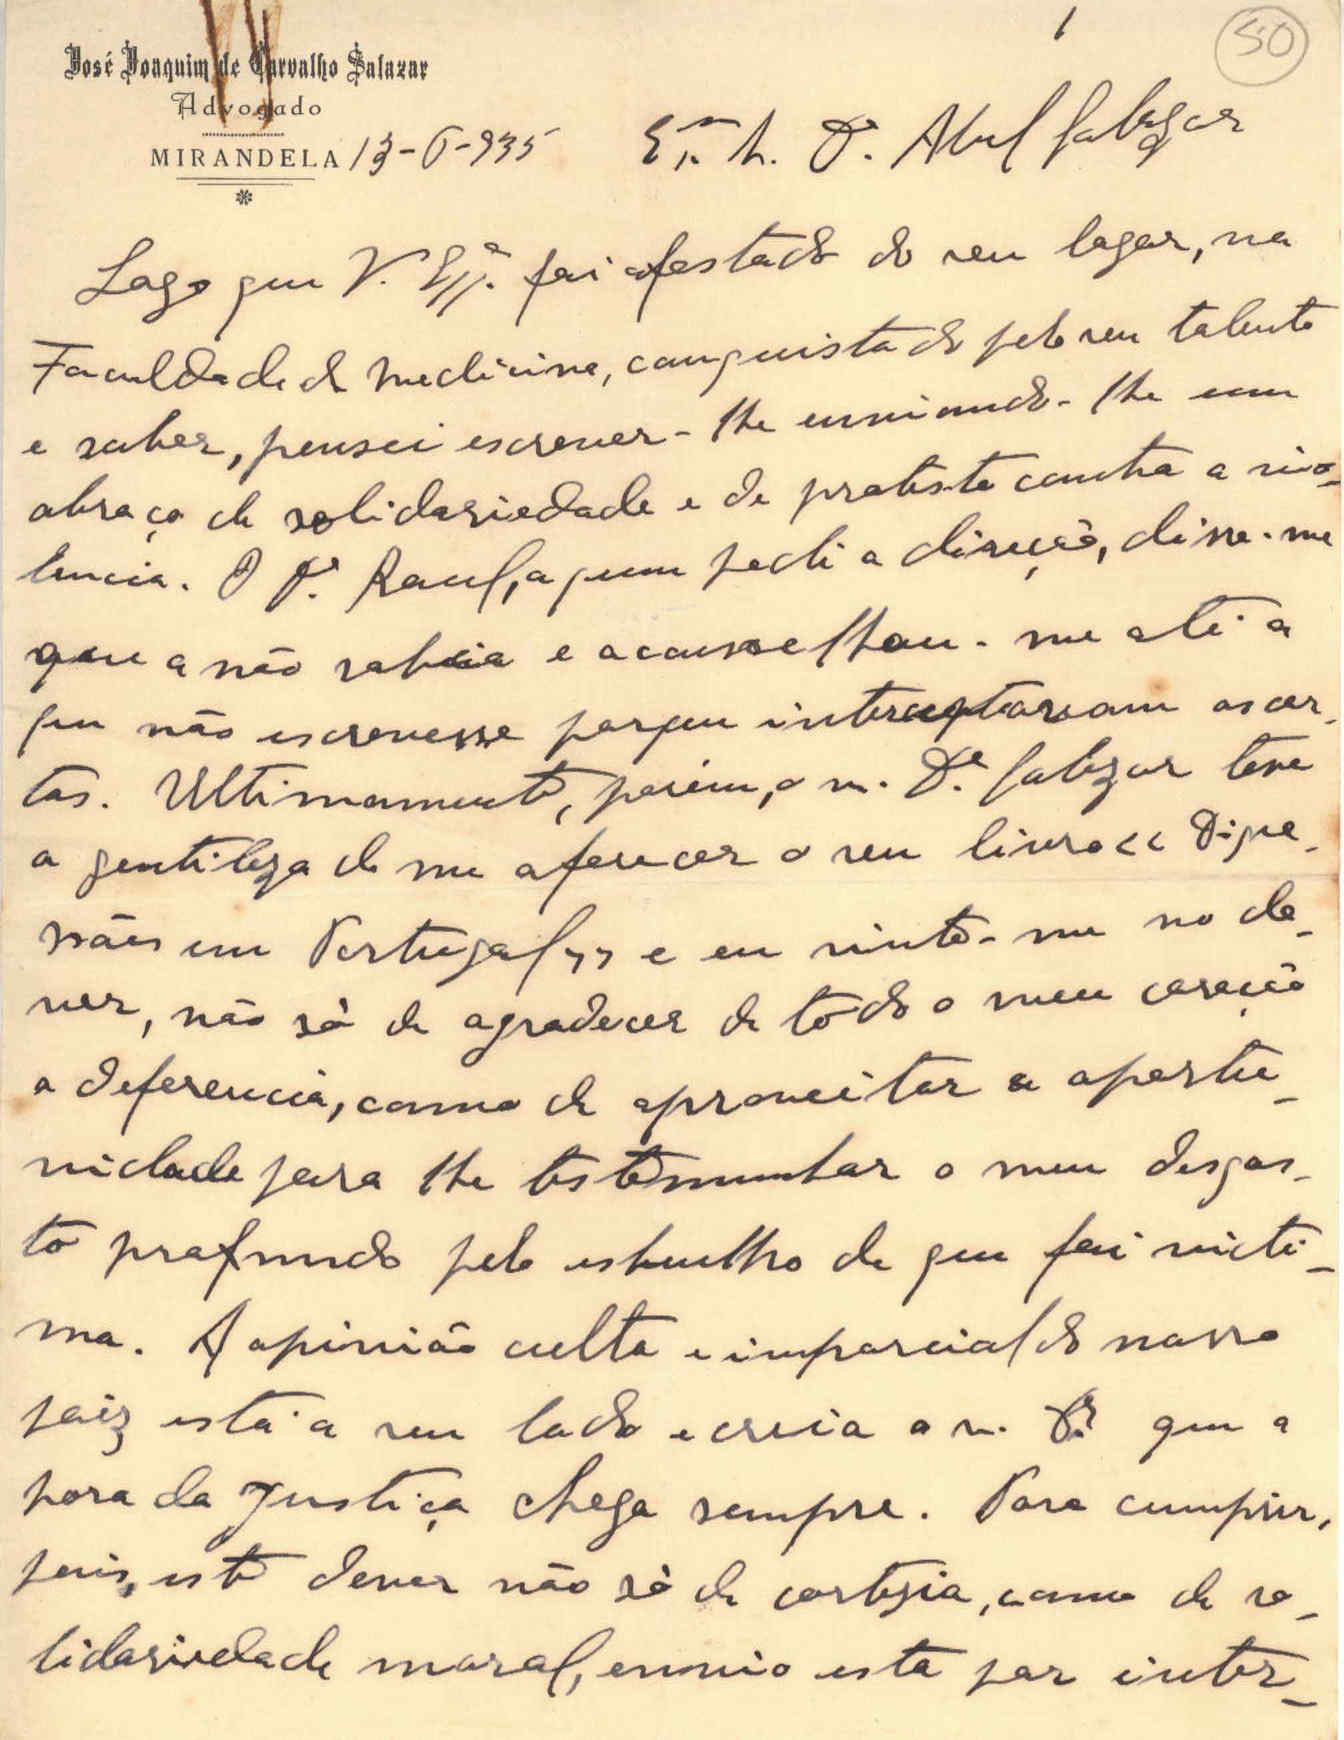 1
50
José Joaquim de Carvalho Salazar
Advogado
MIRANDELA 13-6-935
Ex.mo Sr. Dr. Abel Salazar
Logo que V. Exª. foi afastado do seu lugar, na
Faculdade de Medicina, conquistado pelo seu talento
e saber, pensei escrever-lhe enviando-lhe um
abraço de solidariedade e de protesto contra a vio-
lencia. O Dr. Raul, a quem pedi a direção, disse-me
que a não sabia e aconselhou-me até a
que não escrevesse porque interceptavam as car-
tas. Ultimamente, porém, o sr. Dr. Salazar teve
a gentileza de me oferecer o seu livro << Digre-
ssões em Portugal >> e eu sinto-me no de-
ver, não só de agradecer de todo o meu coração
a deferencia, como de aproveitar a oportu-
nidade para lhe testemunhar o meu desgos-
to profundo pelo esbulho de que foi victi-
ma. A opinião culta e imparcial do nosso
paiz está a seu lado e creia o sr. Dr. que a
hora da Justiça chega sempre. Para cumprir,
pois, este dever não só de cortezia, como de so-
lidariedade moral, envio esta por inter-